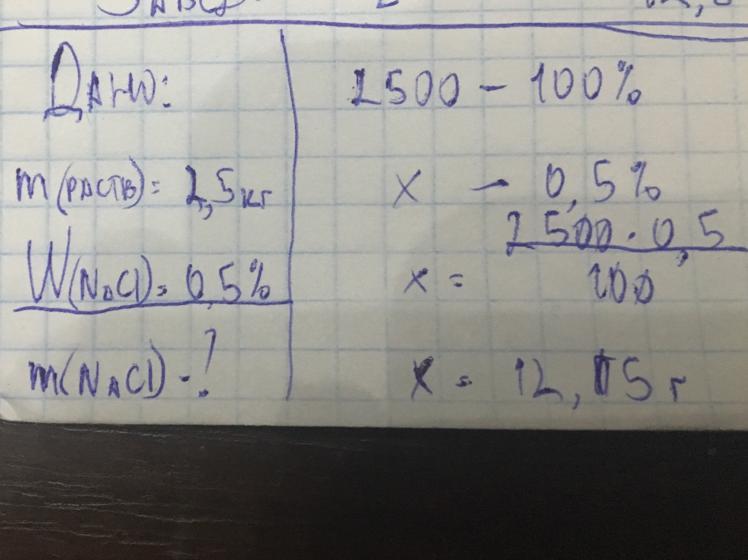 Дано:
m(раств)= 2,5кг
W(NaCl)= 0,5%
m(NaCl) - ?
2500 - 100%
x - 0,5%
2500 · 0,5
x = 100
x = 12,15 г